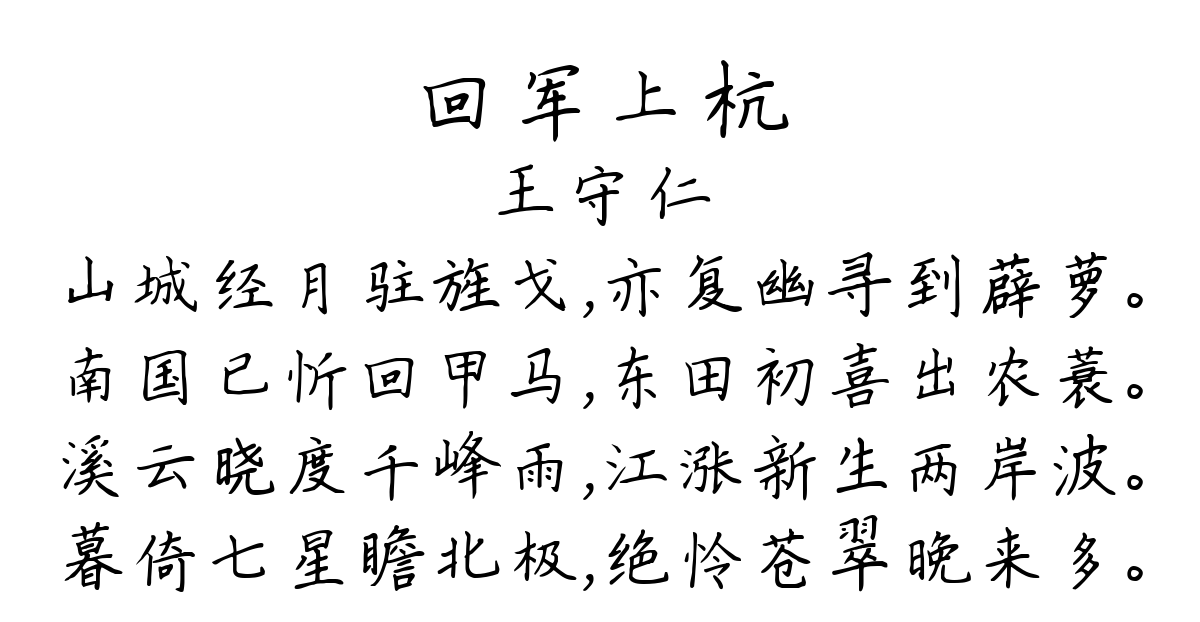 回军上杭
王守仁
山城经月驻旌戈,亦复幽寻到薜萝。
南国已忻回甲马,东田初喜出农蓑。
溪云晓度千峰雨,江涨新生两岸波。
暮倚七星瞻北极,绝怜苍翠晚来多。